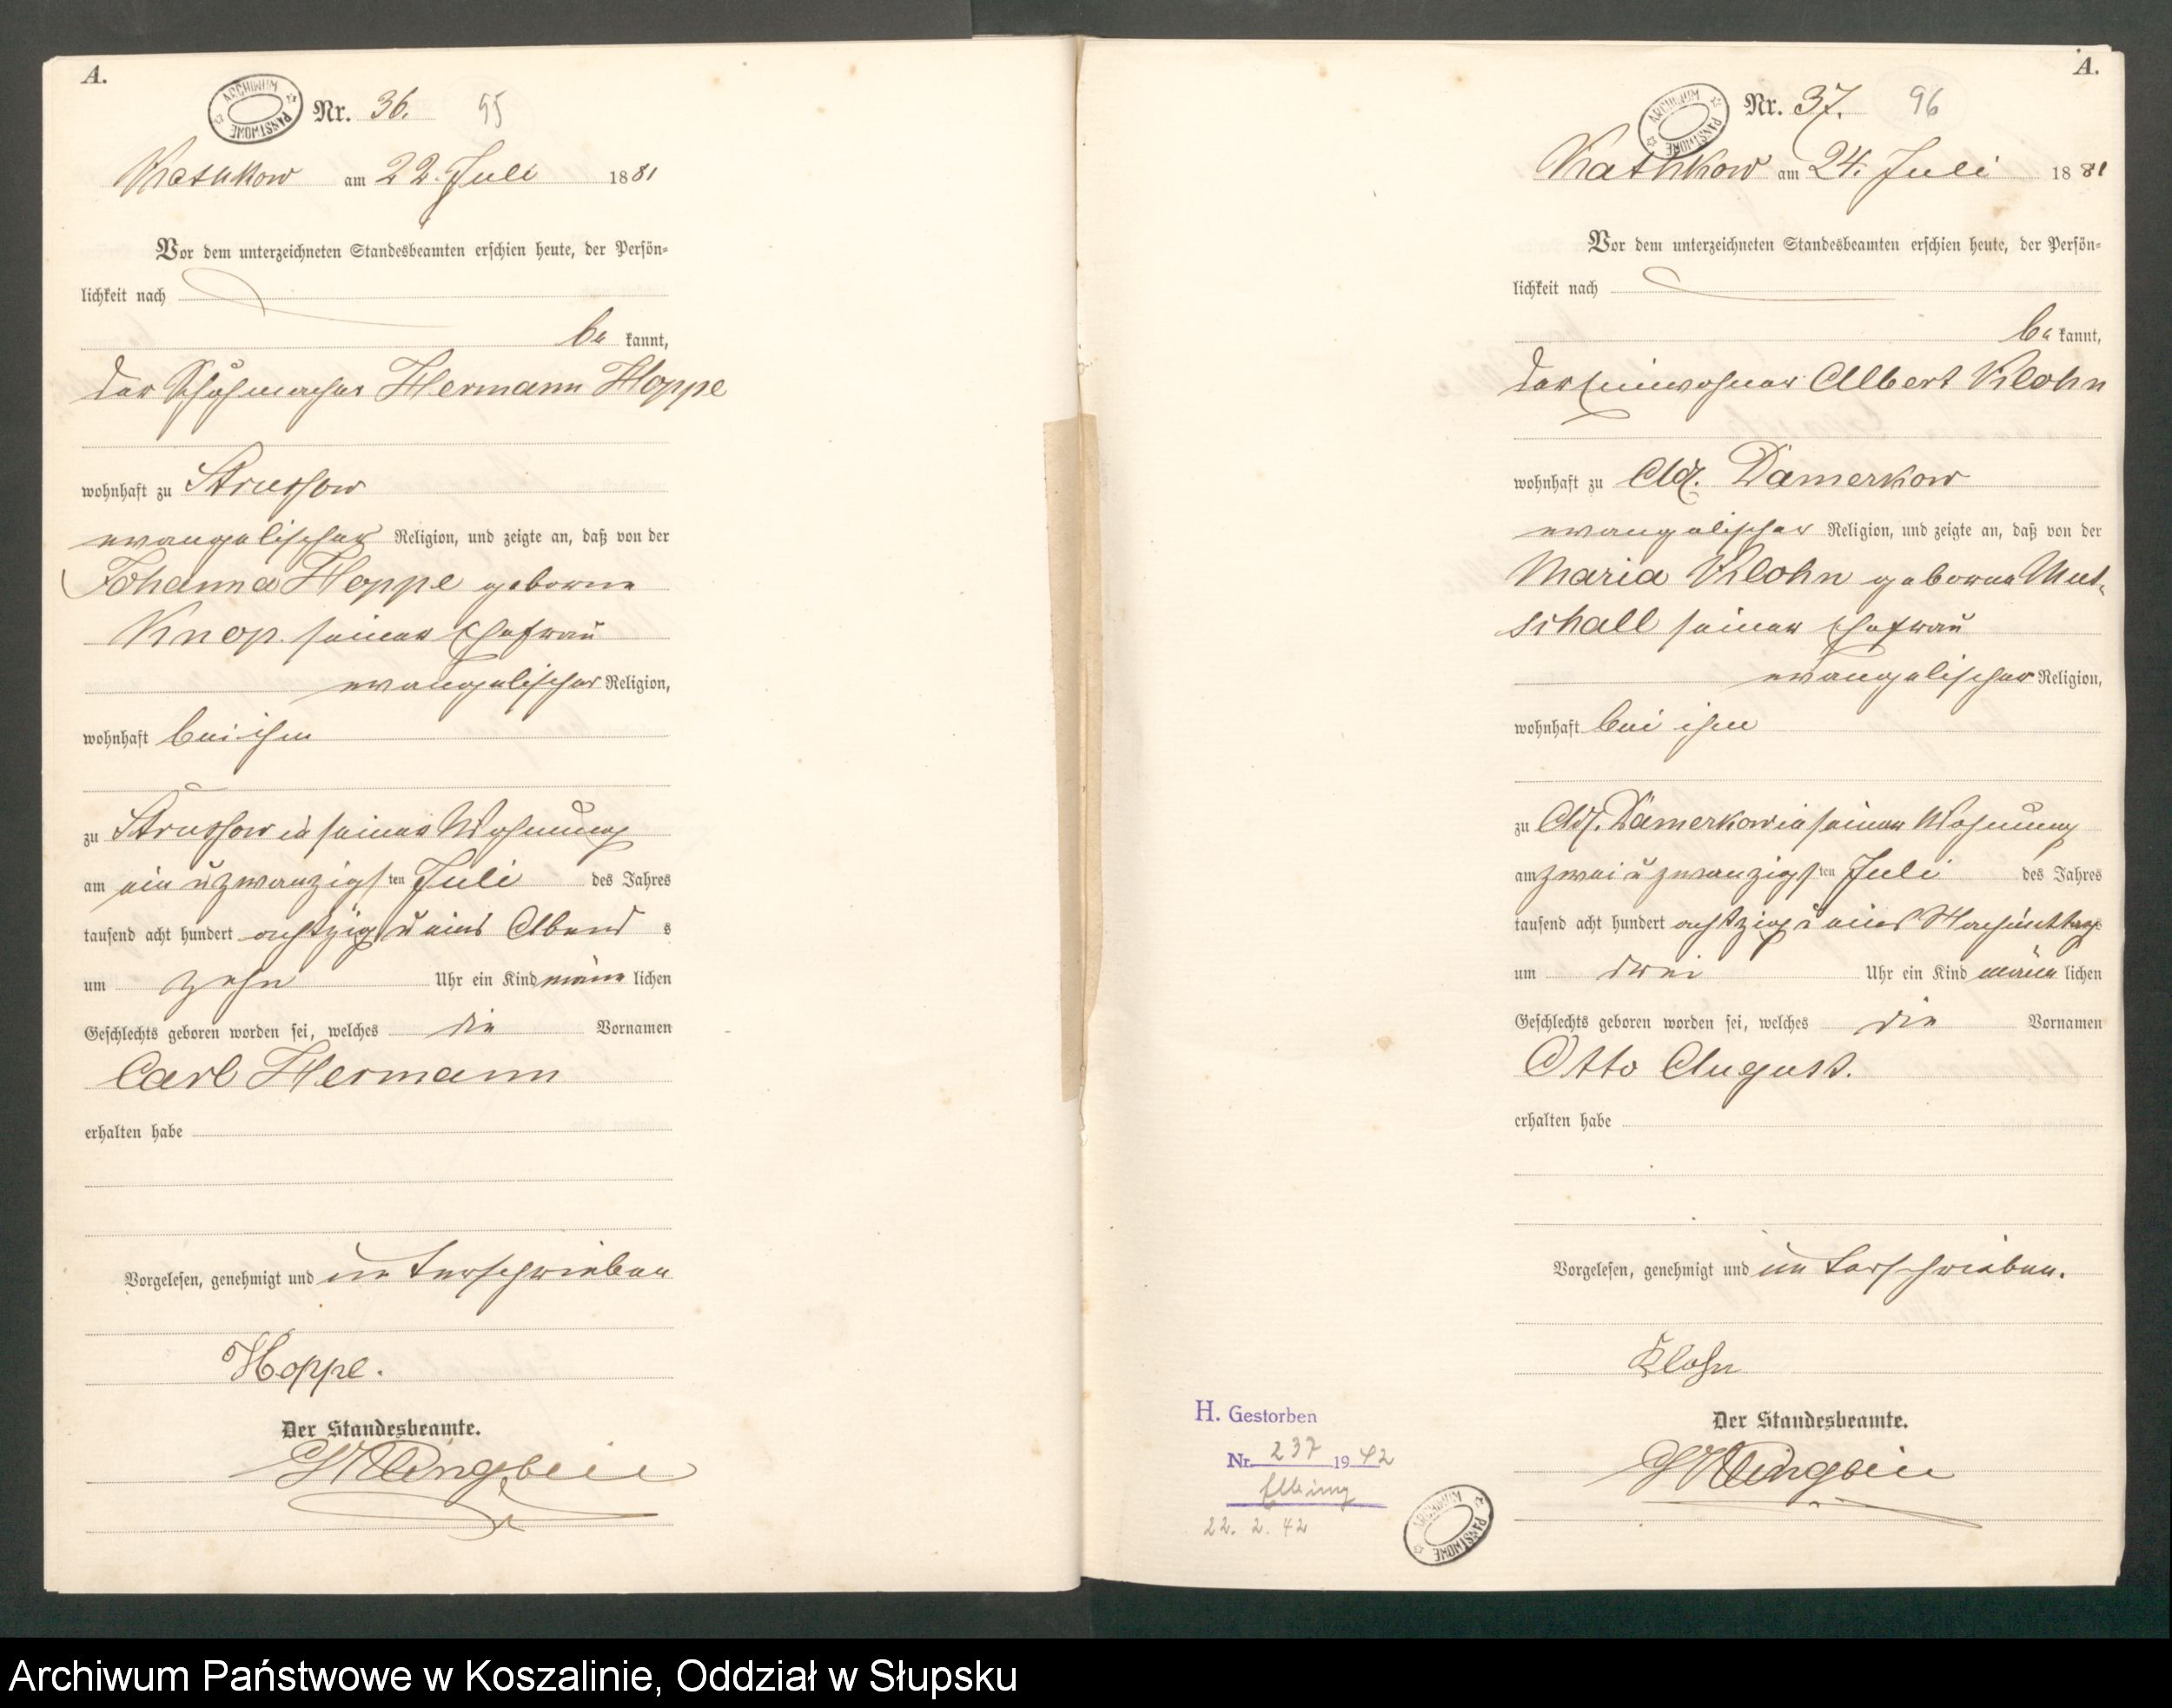 A.
ARCHIWUM PAŃSTWOWE
Nr. 36. 95
Kathkow am 22. Juli 1881
Vor dem unterzeichneten Standesbeamten erschien heute, der Persön=
lichkeit nach
be kannt,
der Schuhmacher Hermann Hoppe
wohnhaft zu Strussow
evangelischer Religion, und zeigte an, daß von der
Johanna Hoppe geborne
Knop. seiner Ehefrau
evangelischer Religion,
wohnhaft bei ihm
zu Strussow in seiner Wohnung
am ein u zwanzigsten Juli des Jahres
tausend acht hundert achtzig u eins Abend s
um zehn Uhr ein Kind männ lichen
Geschlechts geboren worden sei, welches die Vornamen
Carl Hermann
erhalten habe
Vorgelesen, genehmigt und unterschrieben
Hoppe.
Der Standesbeamte.
Klingbeil
A.
ARCHIWUM PAŃSTWOWE
Nr. 37. 96
Kathkow am 24. Juli 1881
Vor dem unterzeichneten Standesbeamten erschien heute, der Persön=
lichkeit nach
be kannt,
der Einwohner Albert Klohn
wohnhaft zu Adl. Damerkow
evangelischer Religion, und zeigte an, daß von der
Maria Klohn geborne Mut-
schall seiner Ehefrau
evangelischer Religion,
wohnhaft bei ihm
zu Adl. Damerkow in seiner Wohnung
am zwei u zwanzigsten Juli des Jahres
tausend acht hundert achtzig u eins Nachmittags
um drei Uhr ein Kind männ lichen
Geschlechts geboren worden sei, welches die Vornamen
Otto August.
erhalten habe
Vorgelesen, genehmigt und unterschrieben.
Klohn
Der Standesbeamte.
Klingbeil
H. Gestorben
Nr. 237 1942
Elbing
22. 2. 42
ARCHIWUM PAŃSTWOWE
Archiwum Państwowe w Koszalinie, Oddział w Słupsku